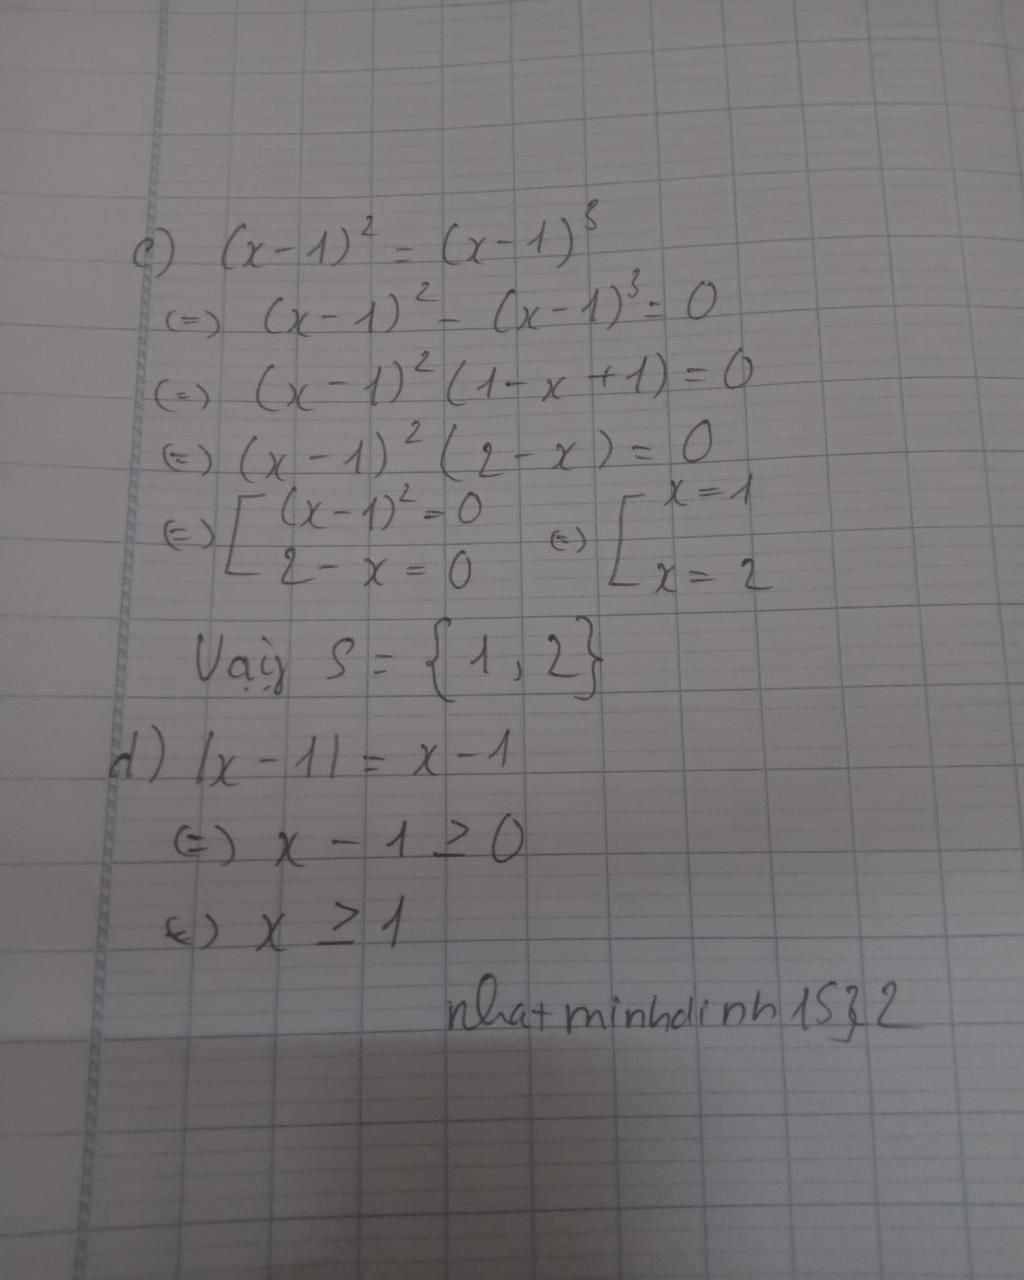 c) (x-1)² = (x-1)³
(=) (x-1)² - (x-1)³ = 0
(=) (x-1)² (1-x+1) = 0
(=) (x-1)² (2-x) = 0
(=) [ (x-1)² = 0 (=) [ x = 1
2 - x = 0 x = 2
Vậy S = {1, 2}
d) |x-1| = x-1
(=) x - 1 ≥ 0
(=) x ≥ 1
nhatminhdinh1532